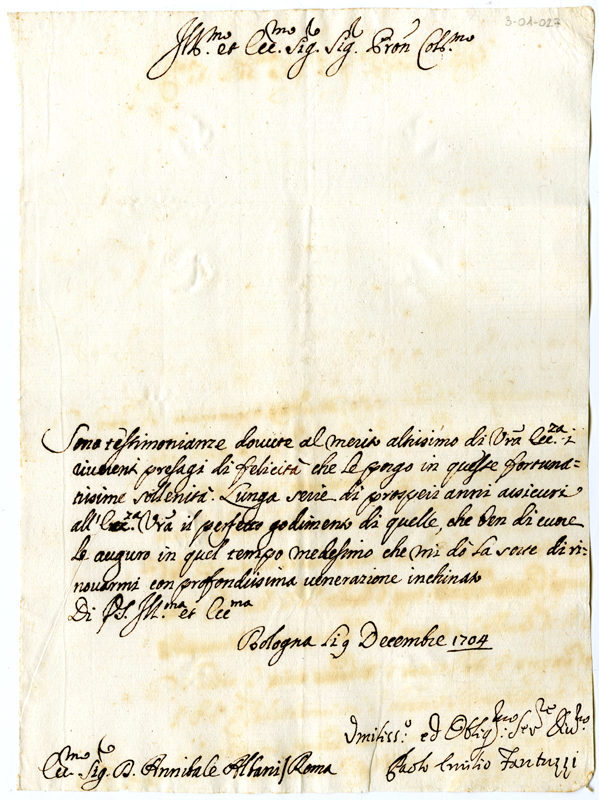 3-01-027
Ill.mo et Ecc.mo Sig.r Sig.r Pron Col.mo
Sono testimonianze dovute al merito altissimo di Vra Ecc.za i
riverenti presagi di felicità che le pongo in queste fortuna=
tissime sollenità. Lunga serie di prosperi anni assicuri
all'Ecc.za Vra il perfetto godimento di quelle, che ben di cuore
le auguro in quel tempo medesimo che mi dò la sorte di ri=
novarmi con profondissima venerazione inchinato
Di V.S. Ill.ma et Ecc.ma
Bologna li 9 Decembre 1704
Umiliss.o ed Oblig.mo Ser.re
Ecc.mo Sig.r D. Annibale Albani / Roma
Paolo Emilio Fantuzzi